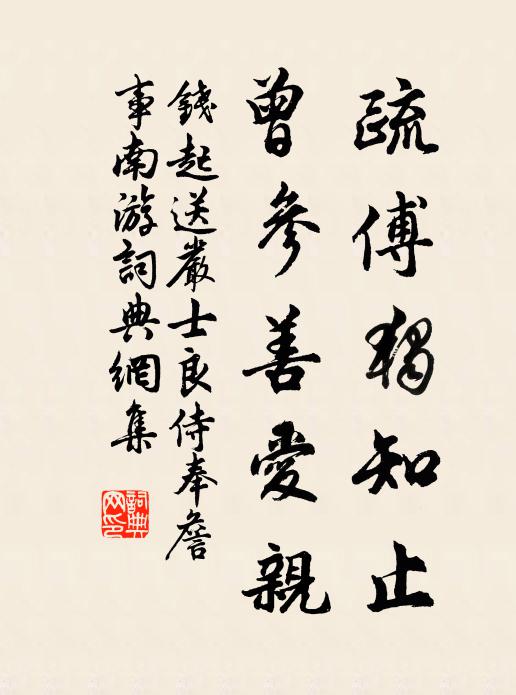 疏傅獨知止
曾參善愛親
錢起送嚴士良侍奉詹
事南游詞典網集
詞典
网印